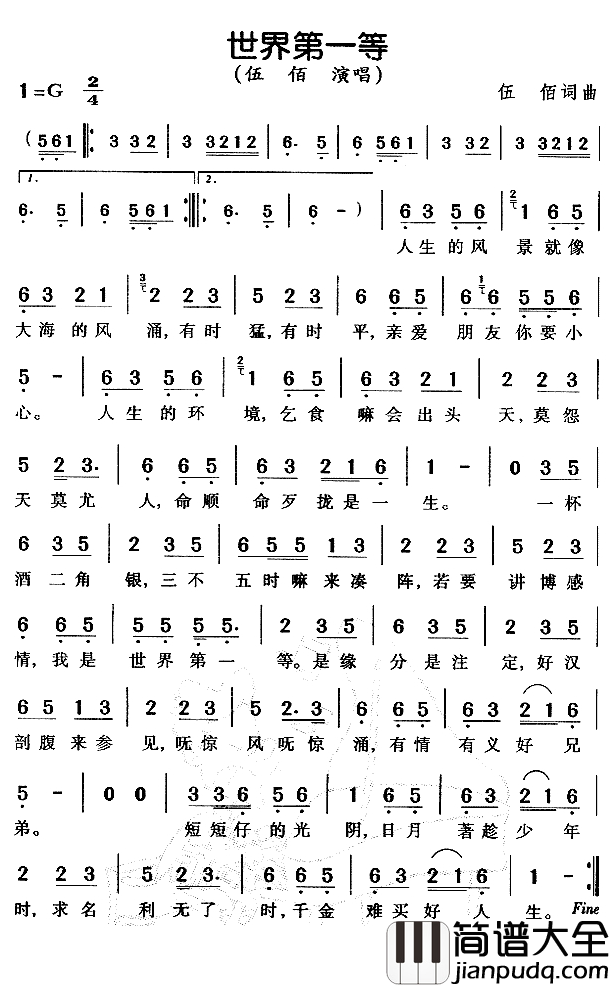 世界第一等
(伍 佰 演唱)
1=G 2/4
伍 佰 词 曲
(561 |: 3 32 | 3 3212 | 6. 5 | 6 561 | 3 32 | 3 3212 |
1. 2.
6. 5 | 6 561 :| 6. 5 | 6 - ) | 63 56 | 2 1 65 |
人 生 的 风 景 就 像
63 21 | 3 2 23 | 5 23 | 6 65 | 1 66 556 |
大 海 的 风 涌, 有 时 猛, 有 时 平, 亲 爱 朋 友 你 要 小
5 - | 63 56 | 2 1 65 | 63 21 | 2 22 |
心。 人 生 的 环 境, 乞 食 嘛 会 出 头 天, 莫 怨
5 23. | 6 65 | 63 216 | 1 - | 0 35 |
天 莫 尤 人, 命 顺 命 歹 拢 是 一 生。 一 杯
6 35 | 2 35 | 655 13 | 2 23 | 5 23 |
酒 二 角 银, 三 不 五 时 嘛 来 凑 阵, 若 要 讲 博 感
6 65 | 55 55. | 2 35 | 6 35 | 2 35 |
情, 我 是 世 界 第 一 等。 是 缘 分 是 注 定, 好 汉
65 13 | 2 23 | 52. 3 | 6 65 | 63 216 |
剖 腹 来 参 见, 呒 惊 风 呒 惊 涌, 有 情 有 义 好 兄
5 - | 0 0 | 336 56 | 1 65 | 63 216 |
弟。 短 短 仔 的 光 阴, 日 月 著 趁 少 年
2 23 | 5 23 | 6 65 | 63 216 | 1 - :|
时, 求 名 利 无 了 时, 千 金 难 买 好 人 生。 Fine
简谱大全
jianpudq.com